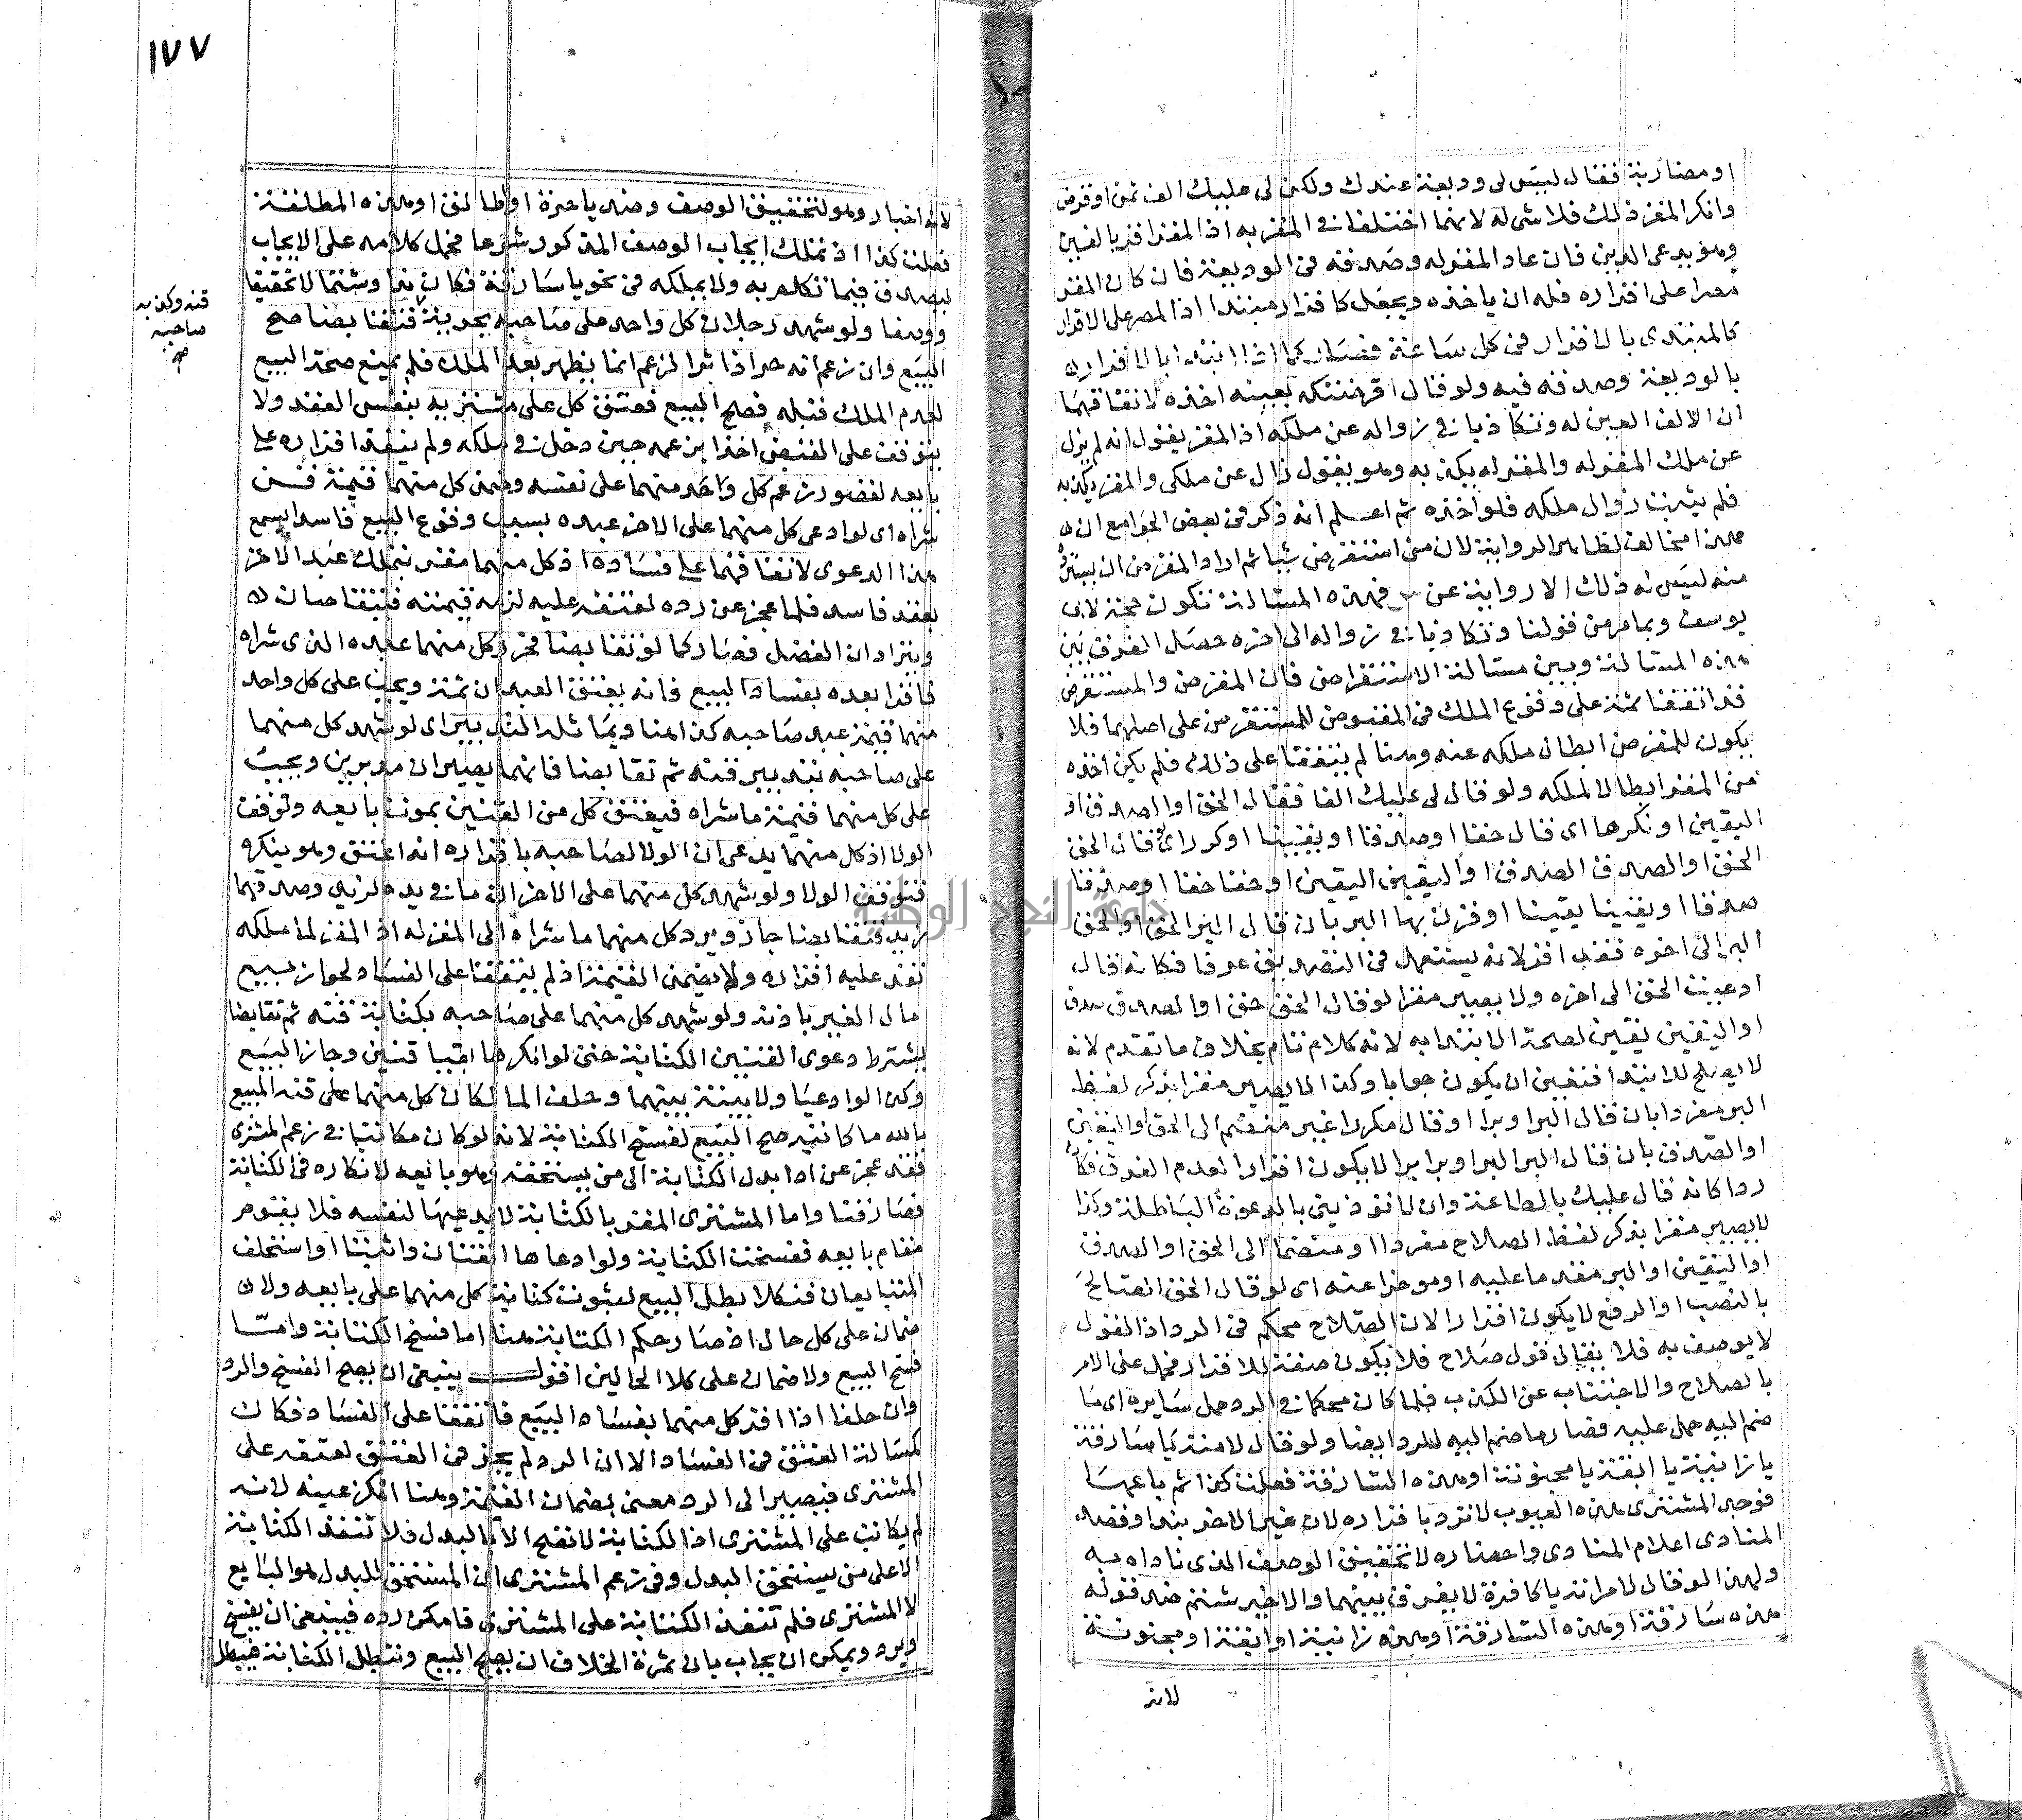 او مضاربة فقال ليس لى وديعة عندك ولكن لى عليك الف ثمن او قرض
وانكر المقر ذلك فلا شى له لانهما اختلفا فى المقر به اذ المقر اقر بالعين
وهو يدعى الدين فان عاد المقر له وصدقه فى الوديعة فان كان المقر
مصرا على اقراره فله ان ياخذه ويجعل كاقرار مبتدا اذ المصر على الاقرار
كالمبتدى بالاقرار فى كل ساعة فصار كما اذا ابتدا بالاقرار
بالوديعة وصدقه فيه ولو قال اقرضتكه بعينه اخذه لاتفاقهما
ان الالف العين له وتكاذبا فى زواله عن ملكه اذ المقر يقول انه لم يزل
عن ملك المقر له والمقر له يكذبه وهو يقول زال عن ملكى والمقر يكذبه
فلم يثبت زوال ملكه فلو اخذه ثم اعلم انه ذكر فى بعض الجوامع ان
هذا مخالف لظاهر الرواية لان من استقرض شيا ثم اراد المقرض ان يسترده
منه ليس له ذلك الا رواية عن فهذه المسالة تكون حجة لابى
يوسف وبما مر من قولنا وتكاذبا فى زواله الى اخره حصل الفرق بين
هذه المسالة وبين مسالة الاستقراض فان المقرض والمستقرض
قد اتفقا ثمة على وقوع الملك فى المقبوض للمستقرض على اصلهما فلا
يكون للمقرض ابطال ملكه عنه وهنا لم يتفقا على ذلك فلم يكن اخذه
من المقر ابطالا لملكه ولو قال لى عليك الفا فقال الحق او الصدق او
اليقين او نكرها اى قال حقا او صدقا او يقينا او كرر اى قال الحق
الحق او الصدق الصدق او اليقين اليقين او حقا حقا او صدقا
صدقا او يقينا يقينا او قرن بها البر بان قال البر الحق او الحق
البر الى اخره فقد اقر لانه يستعمل فى التصديق عرفا فكانه قال
ادعيت الحق الى اخره ولا يصير مقرا لو قال الحق حق او الصدق صدق
او اليقين يقين لصحة الابتدا به لانه كلام تام بخلاف ما تقدم لانه
لا يصلح للابتدا فتعين ان يكون جوابا وكذا لا يصير مقرا بذكر لفظ
البر مفردا بان قال البر او برا او قال مكررا غير منضم الى الحق او اليقين
او الصدق بان قال البر البر او برا برا لا يكون اقرارا لعدم العرف فكان
ردا كانه قال عليك بالطاعة وان لا تؤذينى بالدعوة الباطلة وكذا
لا يصير مقرا بذكر لفظ الصلاح مفردا او منضما الى الحق او الصدق
او اليقين او البر مقدما عليه او موخرا عنه اى لو قال الحق الصلاح
بالنصب او الرفع لا يكون اقرارا لان الصلاح محكم فى الرد اذ القول
لا يوصف به فلا يقال قول صلاح فلا يكون صفة للاقرار فحمل على الامر
بالصلاح والاجتناب عن الكذب فلما كان محكما فى الرد حمل سايره اى ما
ضم اليه حمل عليه فصار ما ضم اليه للرد ايضا ولو قال لامته يا سارقة
يا زانية يا ابقة يا مجنونة او هذه السارقة فعلت كذا ثم باعها
فوجد المشترى هذه العيوب لا ترد باقراره لان غير الاخير ندا وقصد
المنادى اعلام المنادى واحضاره لا تحقيق الوصف الذى ناداه به
ولهذا لو قال لامراته يا كافرة لا يفرق بينهما والاخير شتم ضد قوله
هذه سارقة او هذه السارقة او هذه زانية او ابقة او مجنونة
لانه
١٧٧
لانه اخبار وهو لتحقيق الوصف وضد يا حرة او طالق او هذه المطلقة
فعلت كذا اذ تملك ايجاب الوصف المذكور شرعا فحمل كلامه على الايجاب
ليصدق فيما تكلم به ولا يملكه فى نحو يا سارقة فكان ندا وشتما لا تحقيقا
ووصفا ولو شهد رجلان كل واحد على صاحبه بحرية فتقابضا صح
قنه وكذبه
صاحبه
صح
البيع وان زعم انه حر اذ اثر الزعم انما يظهر بعد الملك فلم يمنع صحة البيع
لعدم الملك قبله فصح البيع فعتق كل على مشتريه بنفس العقد ولا
يتوقف على القبض اخذا بزعمه حين دخل فى ملكه ولم ينفذ اقراره على
بايعه لقصور زعم كل واحد منهما على نفسه وضمن كل منهما قيمة قن
شراه اى لو ادعى كل منهما على الاخر عبده بسبب وقوع البيع فاسدا يسمع
هذا الدعوى لاتفاقهما على فساده اذ كل منهما مقر بتملك عبد الاخر
بعقد فاسد فلما عجز عن رده لعتقه عليه لزمه قيمته فيتقاصان
ويترادان الفضل فصار كما لو تقابضا فحرر كل منهما عبده الذى شراه
فاقرا بعده بفساد البيع فانه يعتق العبدان ثمة ويجب على كل واحد
منهما قيمة عبد صاحبه كذا هنا ويماثله التدبير اى لو شهد كل منهما
على صاحبه بتدبير قنه ثم تقابضا فانهما يصيران مدبرين ويجب
على كل منهما قيمة ما شراه فيعتق كل من القنين بموت بايعه وتوقف
الولا اذ كل منهما يدعى ان الولا لصاحبه باقراره انه اعتق وهو ينكره
فتوقف الولا ولو شهد كل منهما على الاخر ان ما فى يده لزيد وصدقهما
زيد وتقابضا جاز ويرد كل منهما ما شراه الى المقر له اذ المقر لما ملكه
نفذ عليه اقراره ولا يضمن القيمة اذ لم يتفقا على الفساد لجواز بيع
مال الغير باذنه ولو شهد كل منهما على صاحبه بكتابة قنه ثم تقابضا
يشترط دعوى القنين الكتابة حتى لو انكرها بقيا قنين وجاز البيع
وكذا لو ادعيا ولا بينة بينهما وحلف المالكان كل منهما على قنه المبيع
بالله ما كاتبه صح البيع لفسخ الكتابة لانه لو كان مكاتبا فى زعم المشترى
فقد عجز عن ادا بدل الكتابة الى من يستحقه وهو بايعه لانكاره فى الكتابة
فصار قنا واما المشترى المقر بالكتابة لا يدعيها لنفسه فلا يقوم
مقام بايعه ففسخت الكتابة ولو ادعاها القنان واثبتا او استحلف
المتبايعان فنكلا بطل البيع لثبوت كتابة كل منهما على بايعه ولا
ضمان على كل حال اذ صار حكم الكتابة هنا اما فسخ الكتابة واما
فسخ البيع ولا ضمان على كلا الحالين اقول ينبغى ان يصح الفسخ والرد
وان حلفا اذا اقر كل منهما بفساد البيع فاتفقا على الفساد فكان
كمسالة العتق فى الفساد الا ان الرد لم يجز فى العتق لعتقه على
المشترى فيصير الى الرد معنى بضمان القيمة وهنا امكن عينه لانه
لم يكاتب على المشترى اذ الكتابة لا تصح الا بالبدل فلا تنفذ الكتابة
الا على من يستحق البدل وفى زعم المشترى ان المستحق للبدل هو البايع
لا المشترى فلم تنفذ الكتابة على المشترى فامكن رده فينبغى ان يفسخ
ويرد ويمكن ان يجاب بان ثمرة الخلاف ان يصح البيع وتبطل الكتابة فيبطل
جامعة النجاح الوطنية